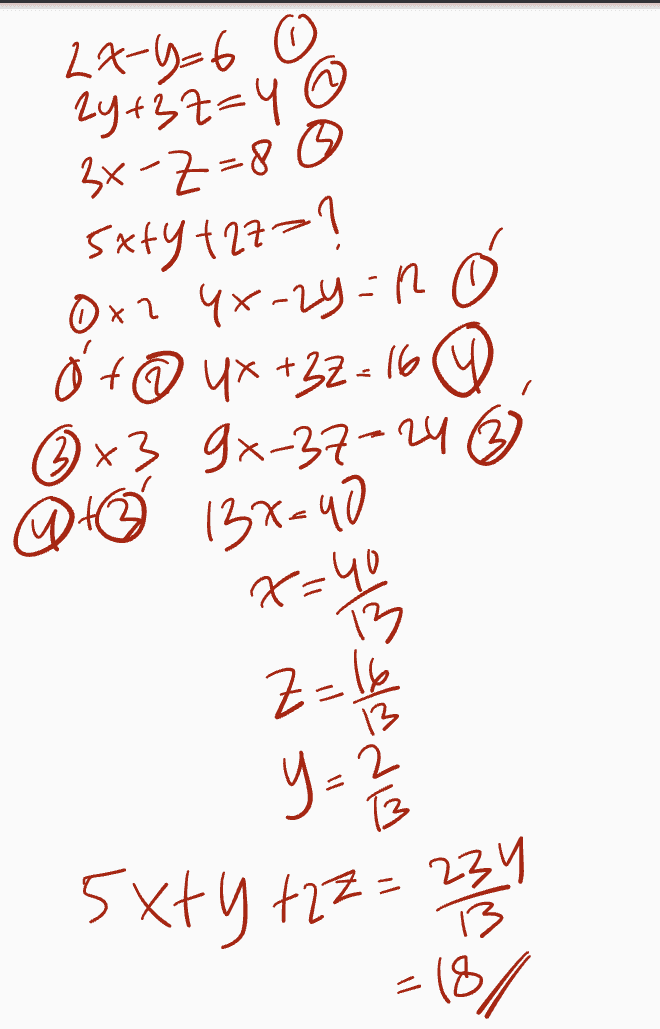 2x-y=6 ①
2y+3z=4 ②
3x-z=8 ③
5x+y+2z=?
①×2 4x-2y=12 ①'
①'+② 4x+3z=16 ④
③×3 9x-3z=24 ③'
④+③' 13x=40
x=40/13
z=16/13
y=2/13
5x+y+2z=234/13
=18//